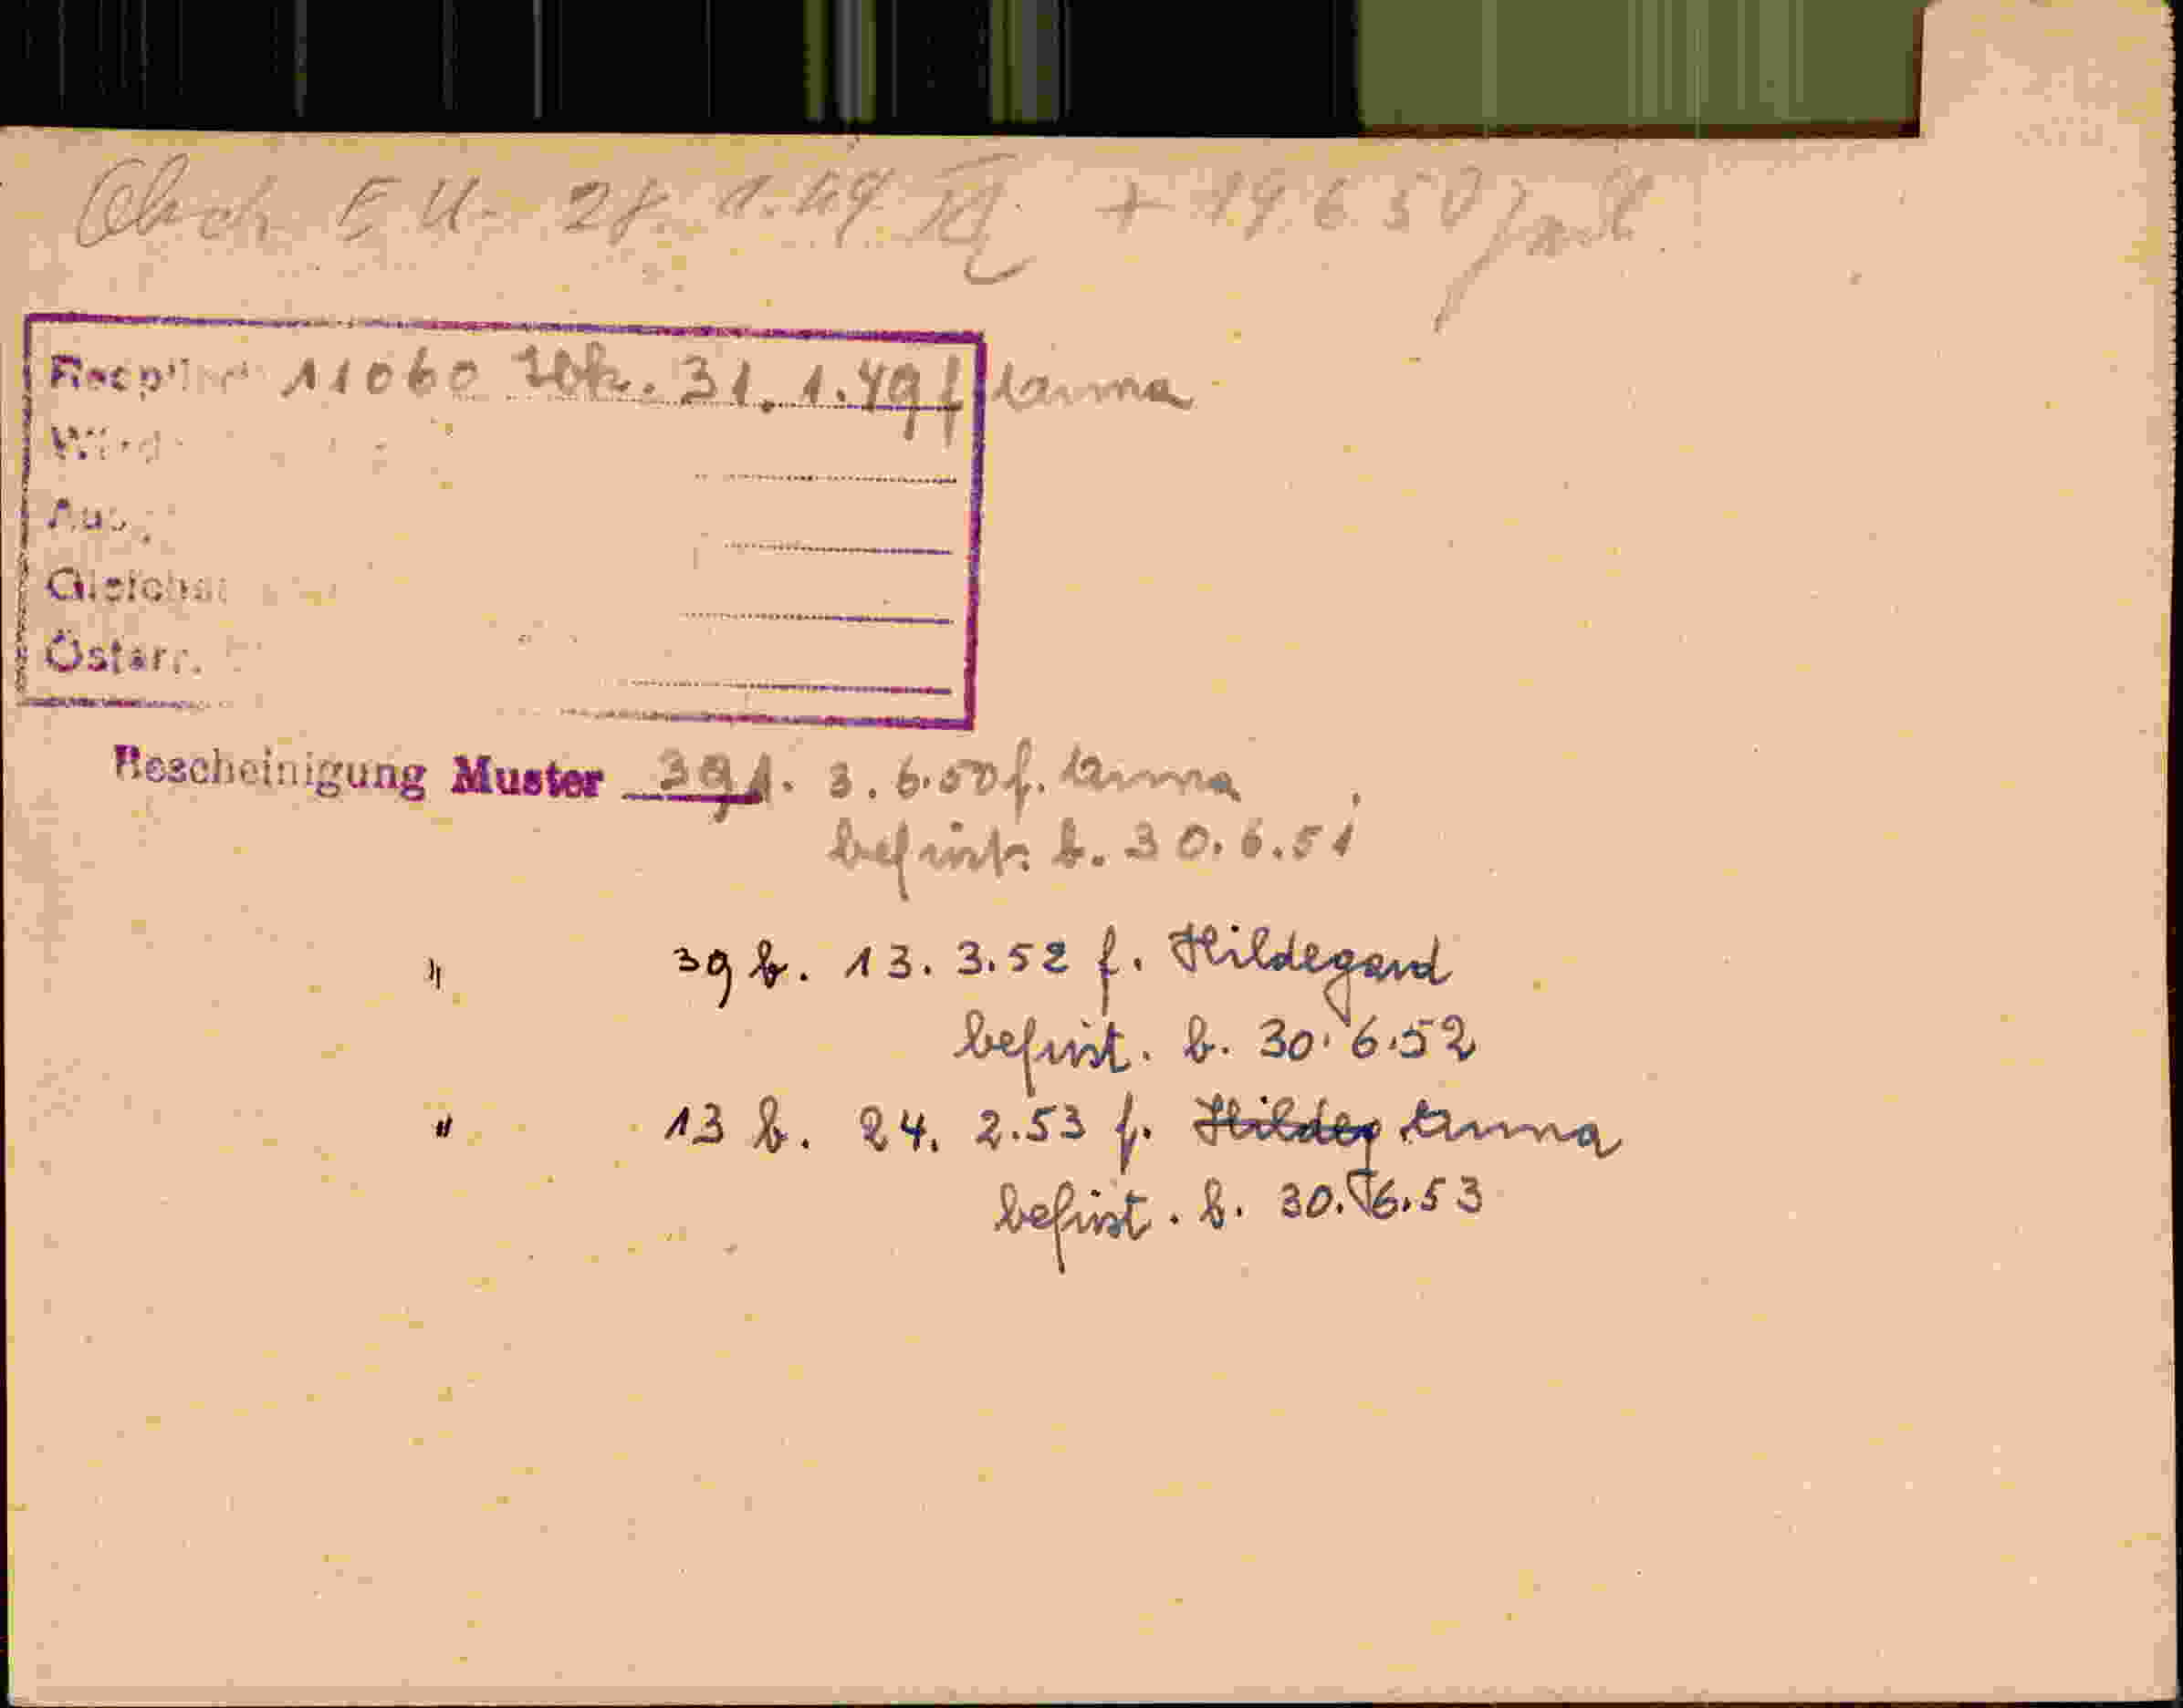 Absch. E U. 28. 1. 49 + 19.6.50
11060 Wk. 31.1.49 f Anna
Wird
Aus
Gleichs
Österr.
Bescheinigung Muster 39 1. 3. 6.50 f. Anna
befrist. b. 30.6.51
" 39 b. 13. 3.52 f. Hildegard
befrist. b. 30.6.52
" 13 b. 24. 2.53 f. Hildeg Anna
befrist. b. 30.6.53